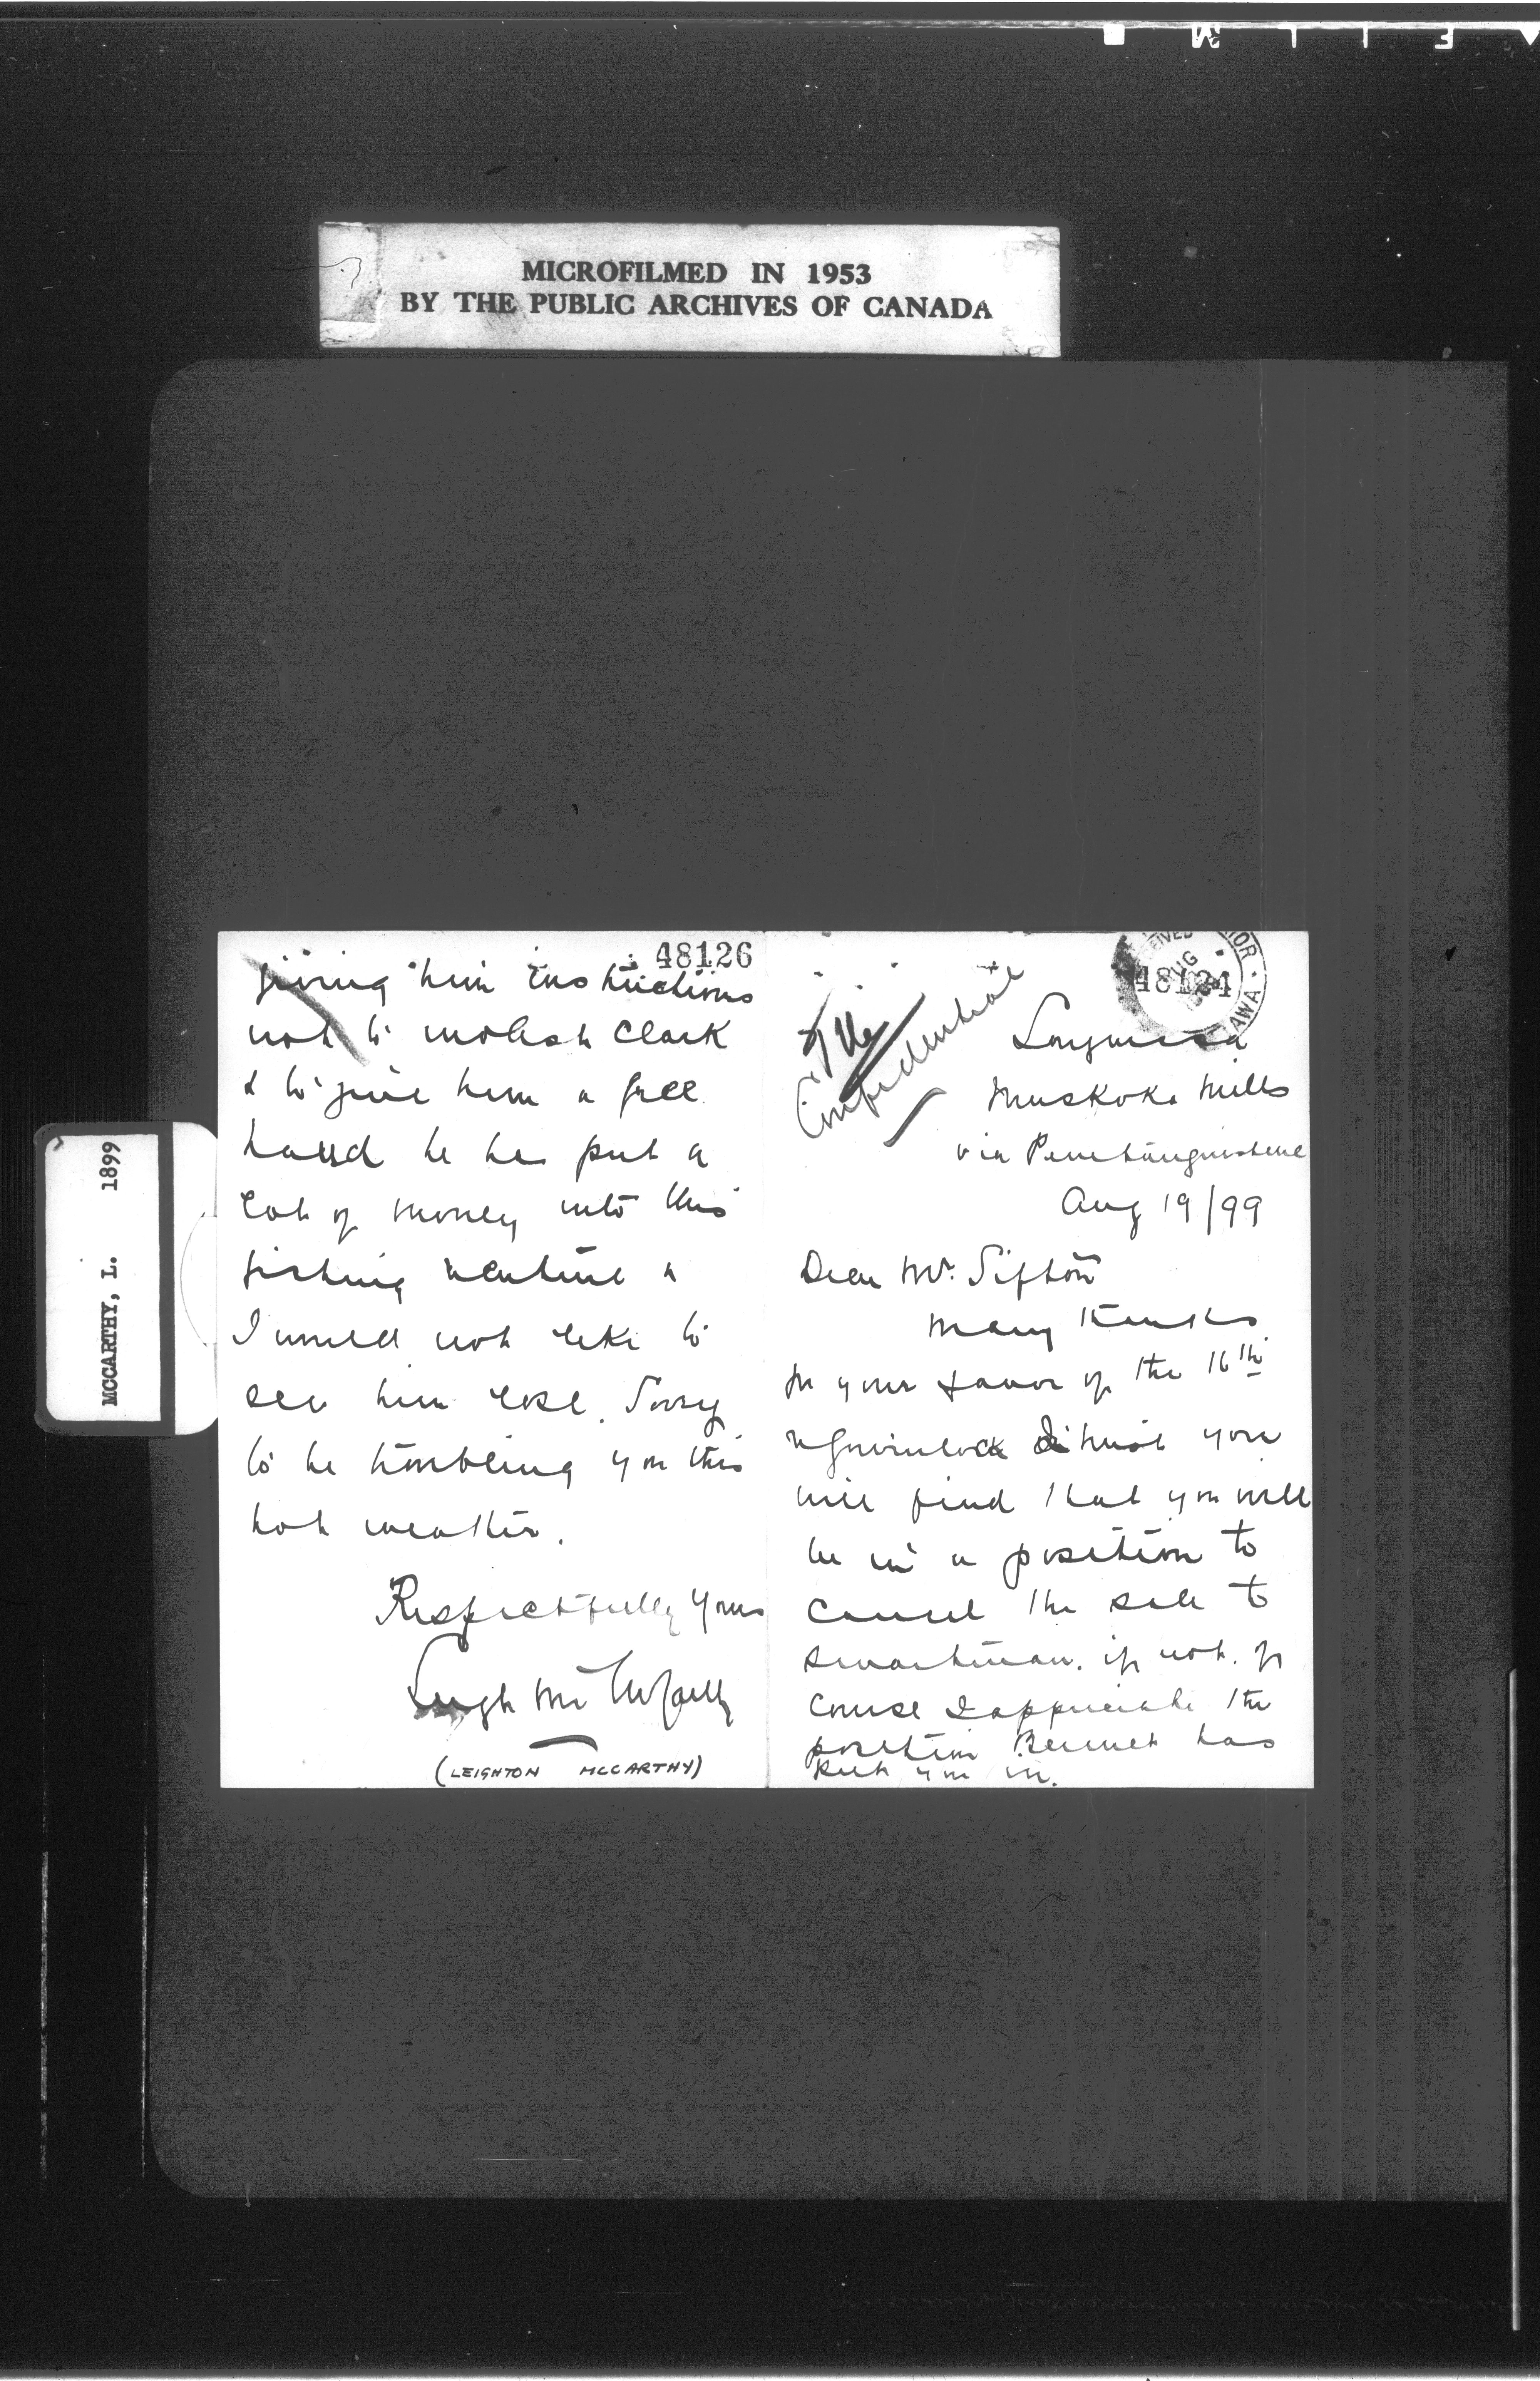 MICROFILMED IN 1953
BY THE PUBLIC ARCHIVES OF CANADA
MCCARTHY, L. 1899
48126
giving him instructions
not to molest Clark
& to give him a free
hand he has put a
lot of money into this
fishing venture &
I would not like to
see him lose. Sorry
to be troubling you this
hot weather.
Respectfully yours
Leigh McCarthy
(LEIGHTON MCCARTHY)
48124
File
Confidential
Muskoka Mills
via Penetanguishene
Aug 19/99
Dear Mr. Sifton
Many thanks
for your favor of the 16th
I trust you
will find that you will
be in a position to
cancel the sale to
if not. of
course I appreciate the
position Bennet has
put you in.